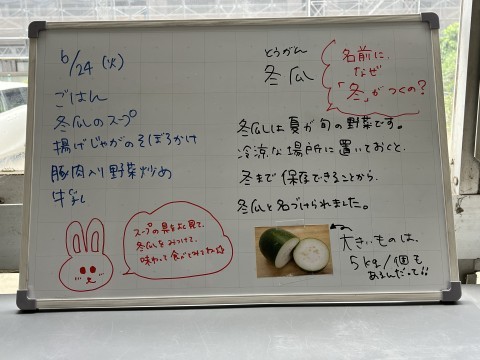 6/24 (火)
ごはん
冬瓜のスープ
揚げじゃがのそぼろかけ
豚肉入り野菜炒め
牛乳
スープの具をよく見て、
冬瓜をみつけて、
味わって食べてみてね
とうがん
冬瓜
名前に、
なぜ
「冬」がつくの?
冬瓜は夏が旬の野菜です。
冷涼な場所に置いておくと、
冬まで保存できることから、
冬瓜と名づけられました。
大きいものは、
5kg/1個も
あるんだって!!